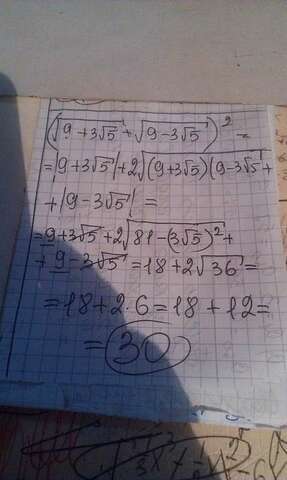 (√9+3√5 + √9-3√5)² =
=|9+3√5|+2√(9+3√5)(9-3√5+
+|9-3√5| =
=9+3√5+2√81-(3√5)²+
+9-3√5=18+2√36=
=18+2·6=18+12=
=30